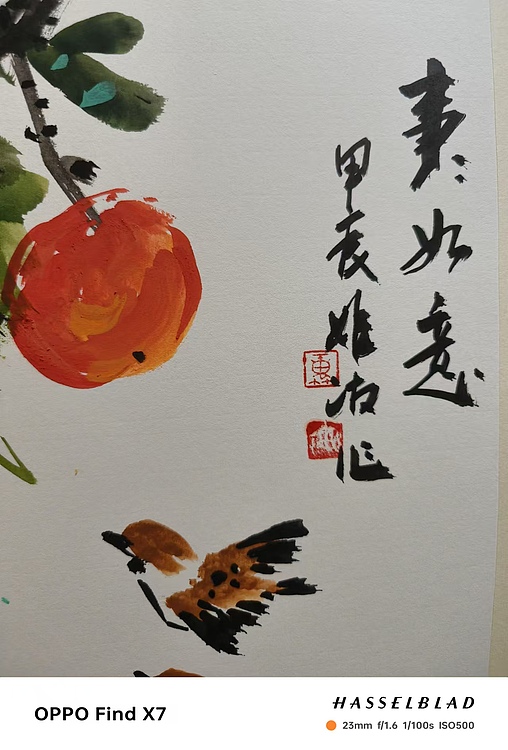 事〻如意
甲辰 作
惠
OPPO Find X7
HASSELBLAD
23mm f/1.6 1/100s ISO500